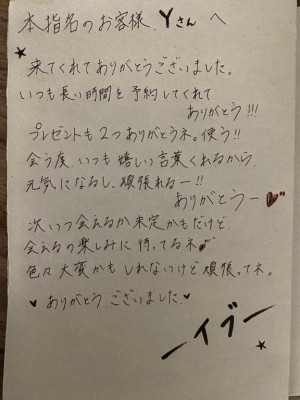 本指名のお客様、Yさんへ
来てくれてありがとうございました。
いつも長い時間を予約してくれて
ありがとう!!!
プレゼントも2つありがとうネ。使う!!
会う度、いつも嬉しい言葉くれるから、
元気になるし、頑張れるー!!
ありがとうー♥
次いつ会えるか未定かもだけど、
会えるの楽しみに待ってるネ♪
色々大変かもしれないけど頑張ってネ。
♥ありがとう、ございました♥
ーイブー